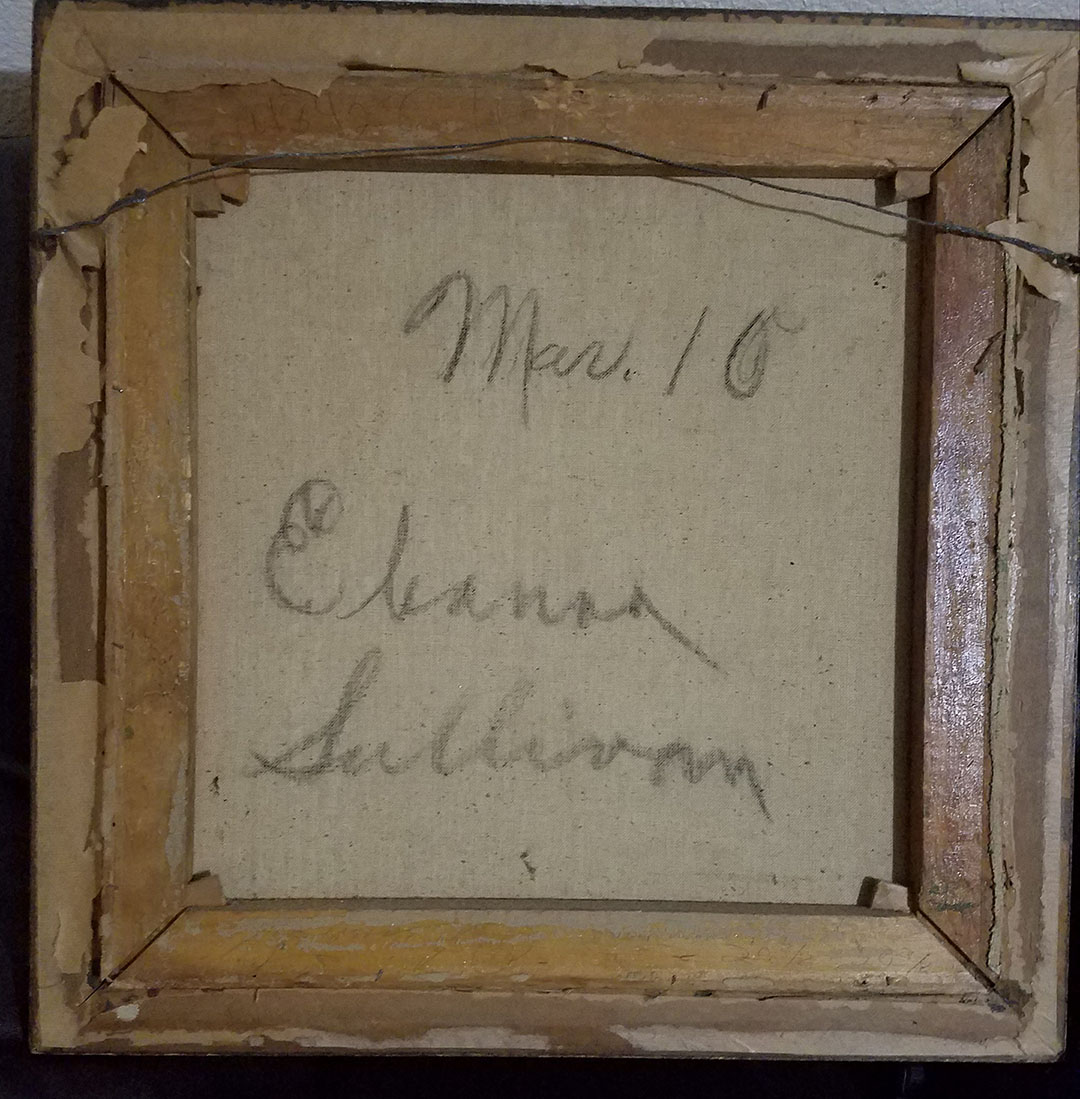 Mar. 10
Eleanor
Sullivan